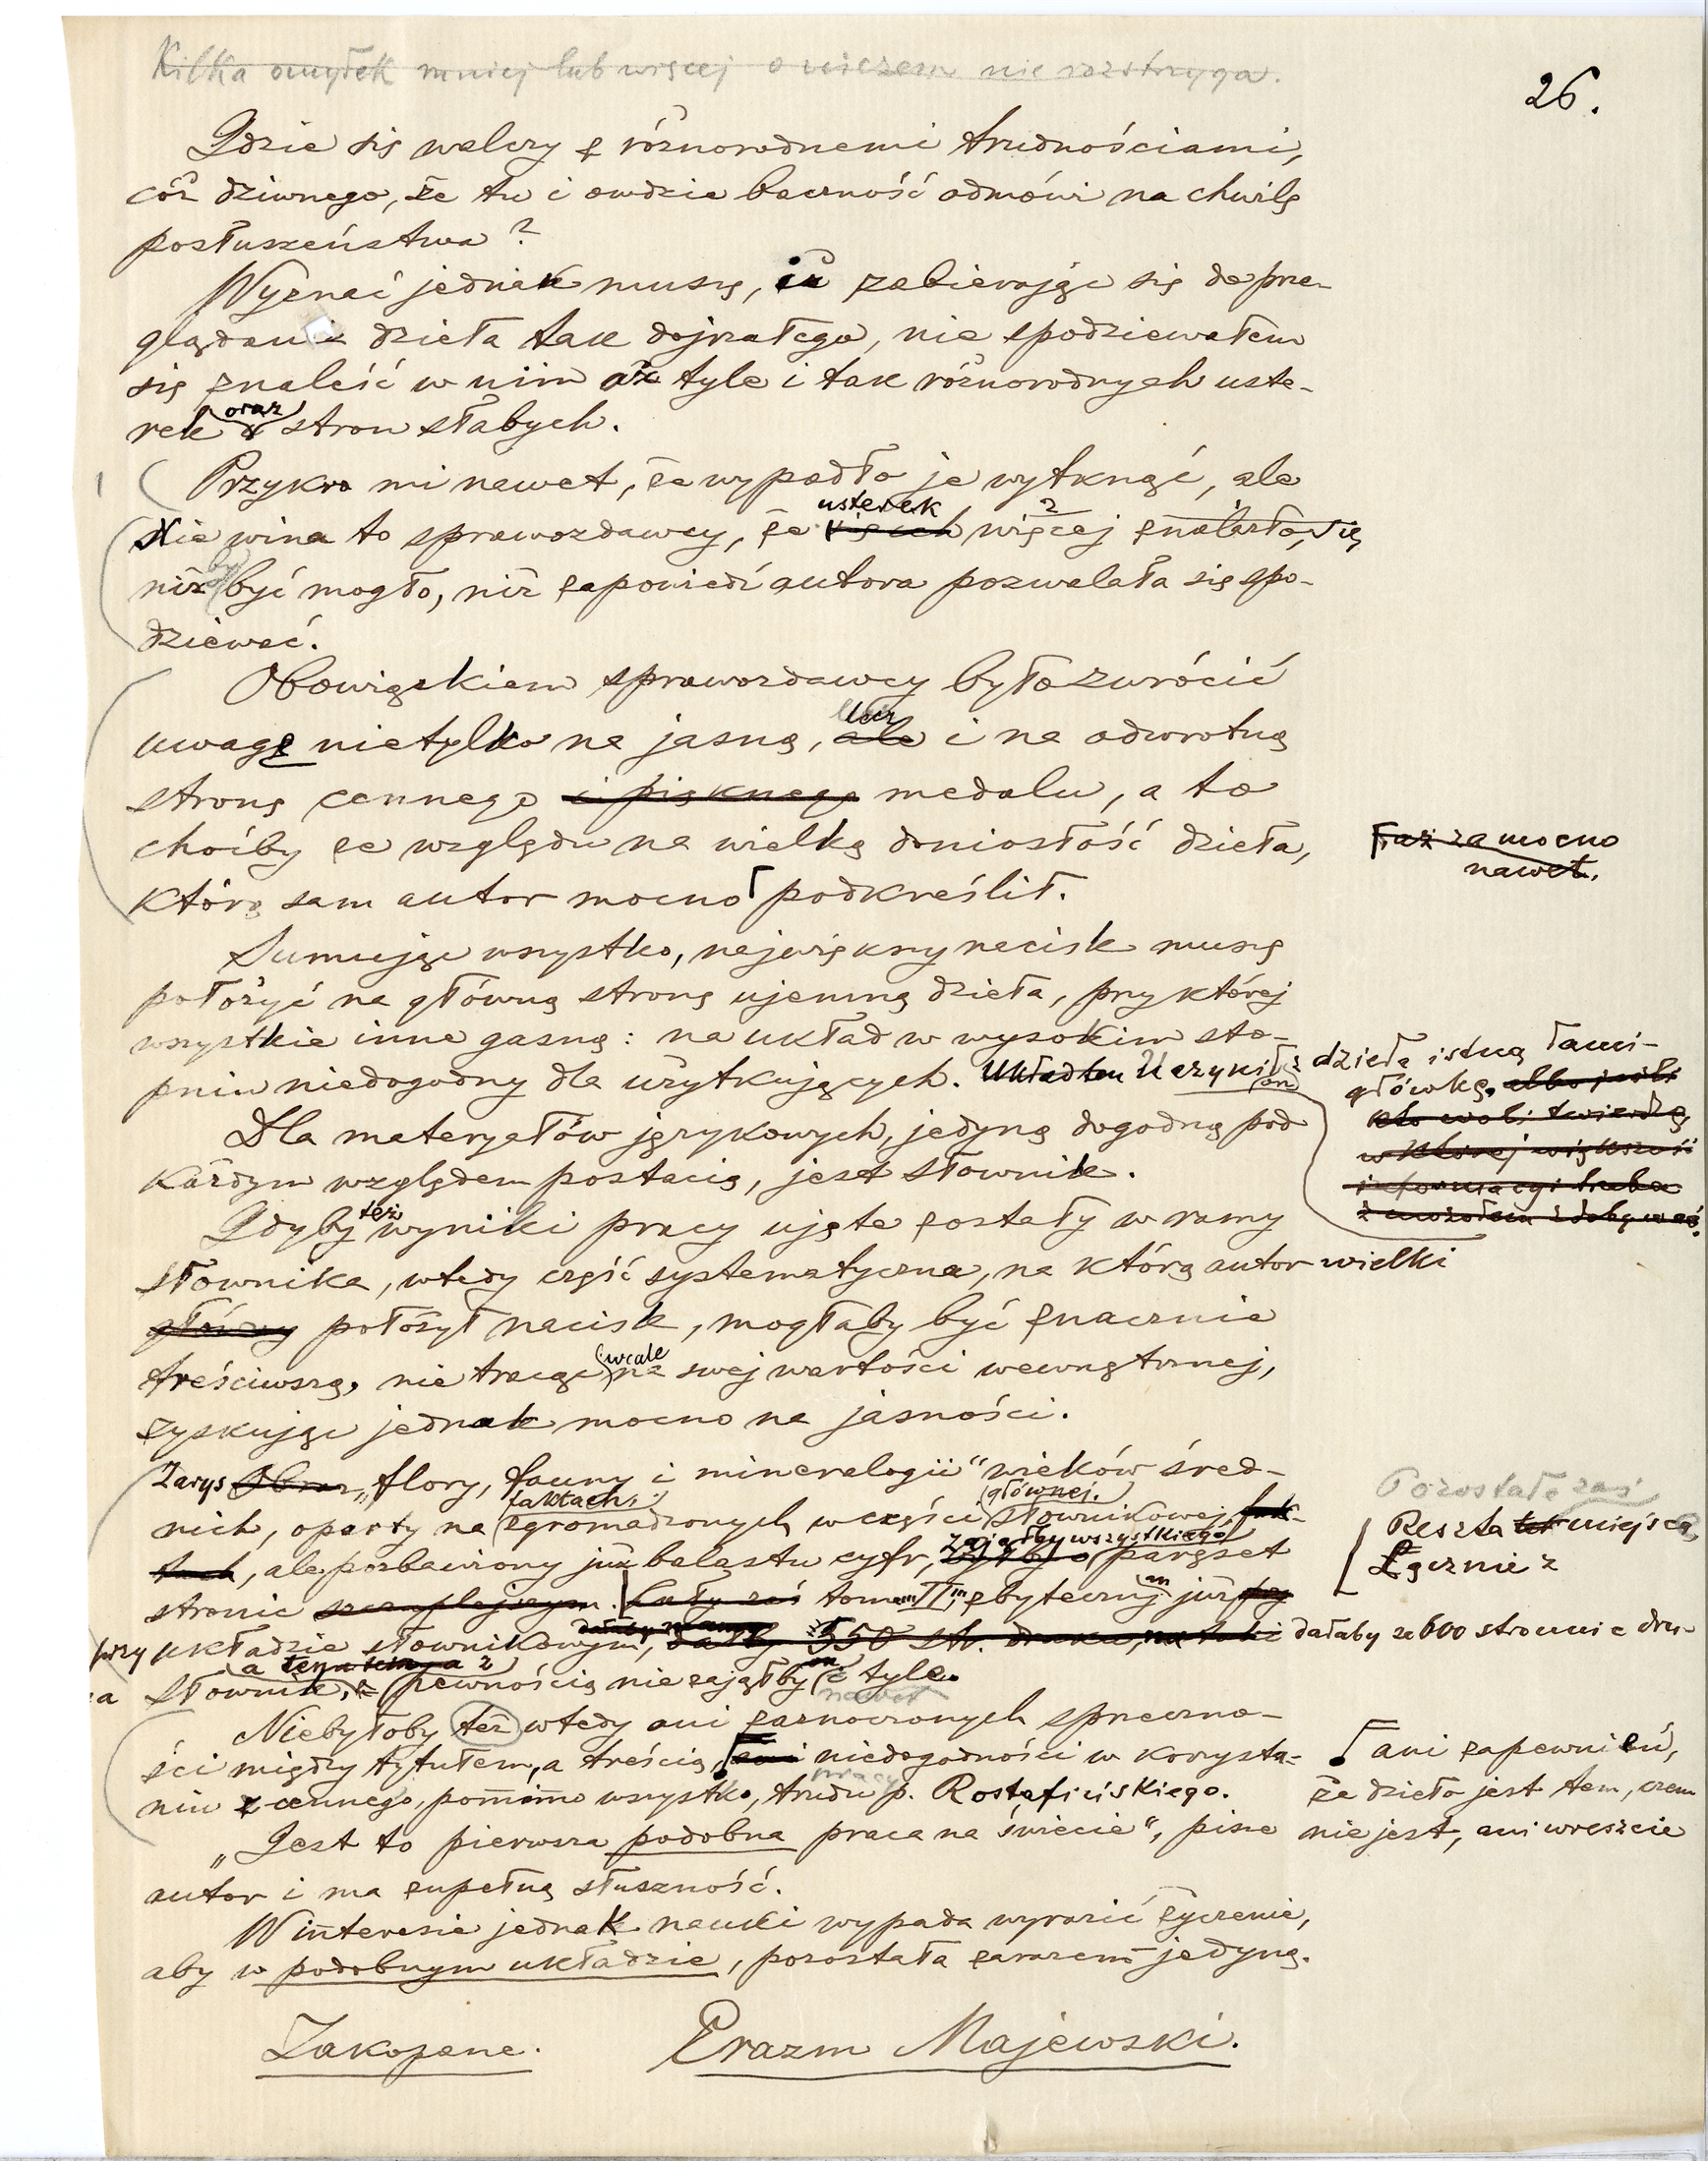 Kilka omyłek mniej lub więcej o niczem nie rozstrzyga.
26.
Gdzie się walczy z różnorodnemi trudnościami,
cóż dziwnego, że tu i owdzie baczność odmówi na chwilę
posłuszeństwa?
Wyznać jednak muszę, iż zabierając się do prze-
glądania dzieła tak dojrzałego, nie spodziewałem
się znaleść w nim aż tyle i tak różnorodnych uste-
rek oraz stron słabych.
Przykro mi nawet, że wypadło je wytknąć, ale
nie wina to sprawozdawcy, że usterek więcej znalazło się,
niż być mogło, niż zapowiedź autora pozwalała się spo-
dziewać.
Obowiązkiem sprawozdawcy było zwrócić
uwagę nietylko na jasną, ale lecz i na odwrotną
stronę cennego i pięknego medalu, a to
choćby ze względu na wielką doniosłość dzieła,
którą sam autor mocno podkreślił.
aż za mocno
nawet.
Sumując wszystko, największy nacisk muszę
położyć na główną stronę ujemną dzieła, przy której
wszystkie inne gasną: na układ w wysokim sto-
pniu niedogodny dla użytkujących. Układ ten Uczynił on z dzieła istną łami-
główkę, albo jeśli
kto woli twierdzę,
w której większość
informacyi trzeba
z mozołem zdobywać.
Dla materyałów językowych, jedyną dogodną pod
każdym względem postacią, jest słownik.
Gdyby też wyniki pracy ujęte zostały w ramy
słownika, wtedy część systematyczna, na którą autor wielki
główny położył nacisk, mogłaby być znacznie
treściwszą, nie tracąc wcale na swej wartości wewnętrznej,
zyskując jednak mocno na jasności.
Zarys Obraz „flory, fauny i mineralogii“ wieków śred-
nich, oparty na faktach, zgromadzonych w części głównej, słownikowej, fak-
tach, ale pozbawiony już balastu cyfr, zająłby wszystkiego paręset
stronic szczuplejszym. Cały zaś tom II, zbyteczny już przy
Pozostałe zaś
Reszta miejsca
Łącznie z
przy układzie słownikowym, dałby 550 str. druku, na taki dałaby ze 600 stronnic dru-
ka a słownik, z pewnością nie zająłby on i tyle.
nawet
Niebyłoby też wtedy ani zaznaczonych sprzeczno-
ści między tytułem, a treścią, ani niedogodności w korzysta-
niu z cennego, pomimo wszystko, trudu p. Rostafińskiego.
pracy
ani zapewnień,
że dzieło jest tem, czem
nie jest, ani wreszcie
„Jest to pierwsza podobna praca na świecie“, pisze
autor i ma zupełną słuszność.
W interesie jednak nauki wypada wyrazić życzenie,
aby w podobnym układzie, pozostała zarazem jedyną.
Zakopane. Erazm Majewski.